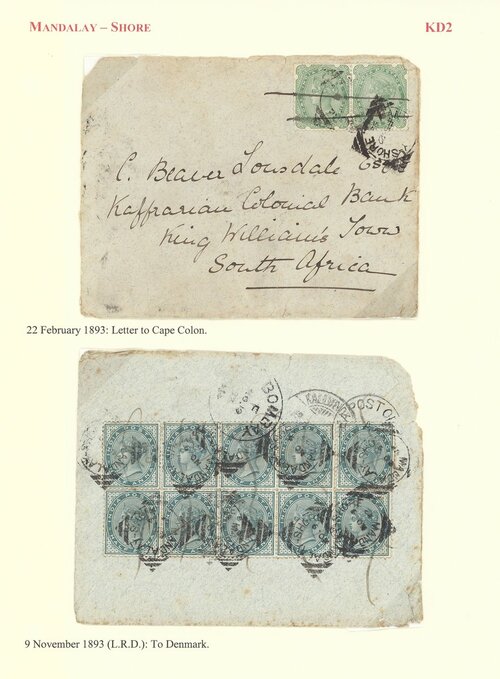 MANDALAY – SHORE
KD2
SHORE
C. Beaver Lonsdale Esq
Kaffrarian Colonial Bank
King William's Town
South Africa
22 February 1893: Letter to Cape Colon.
BOMBAY
POST OF
9 November 1893 (L.R.D.): To Denmark.